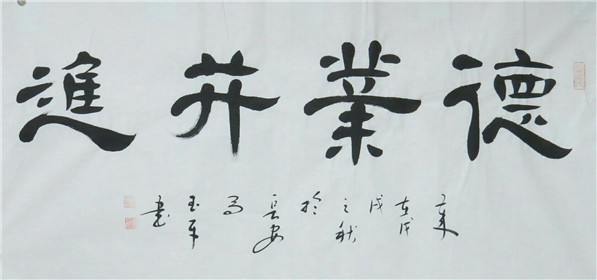 德業并進
在戊
戌
之秋
於
長安
玉平
書